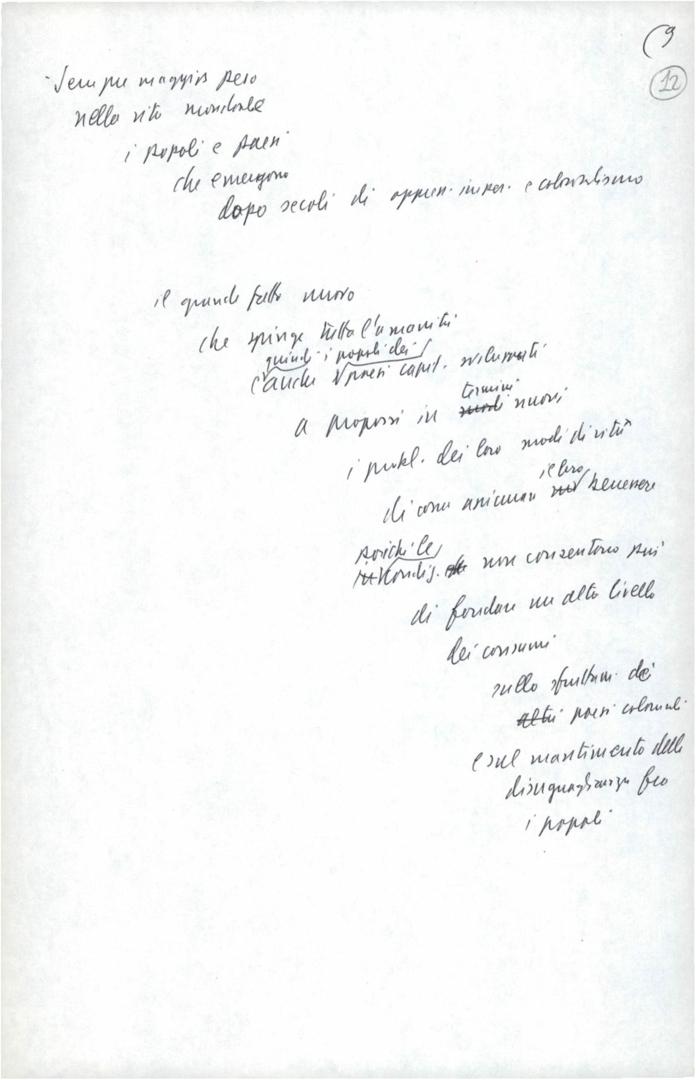 (9
12
Sempre maggior peso
nella vita mondiale
i popoli e paesi
che emergono
dopo secoli di oppres. imper. e colonialismo
il grande fatto nuovo
che spinge tutta l'umanità
quindi i popoli dei
anche paesi capit. sviluppati
termini
a proporsi in modi nuovi
i probl. dei loro modi di vita
il loro
di come assicurare benessere
poiché le
condiz. non consentono più
di fondare un alto livello
dei consumi
sullo sfruttam. dei
altri paesi coloniali
e sul mantimento delle
disuguaglianze fra
i popoli